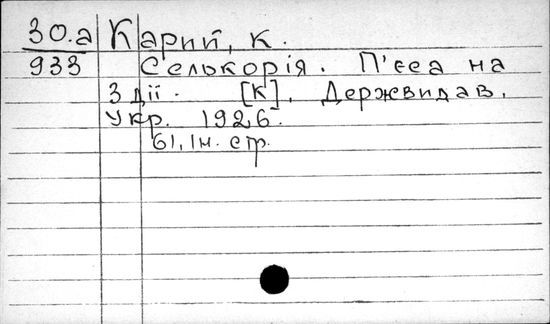 30.а Карий, К.
933 Селькорія. П'єса на
3 дії. [К]. Держвидав.
Укр. 1926.
61, 1н. стр.